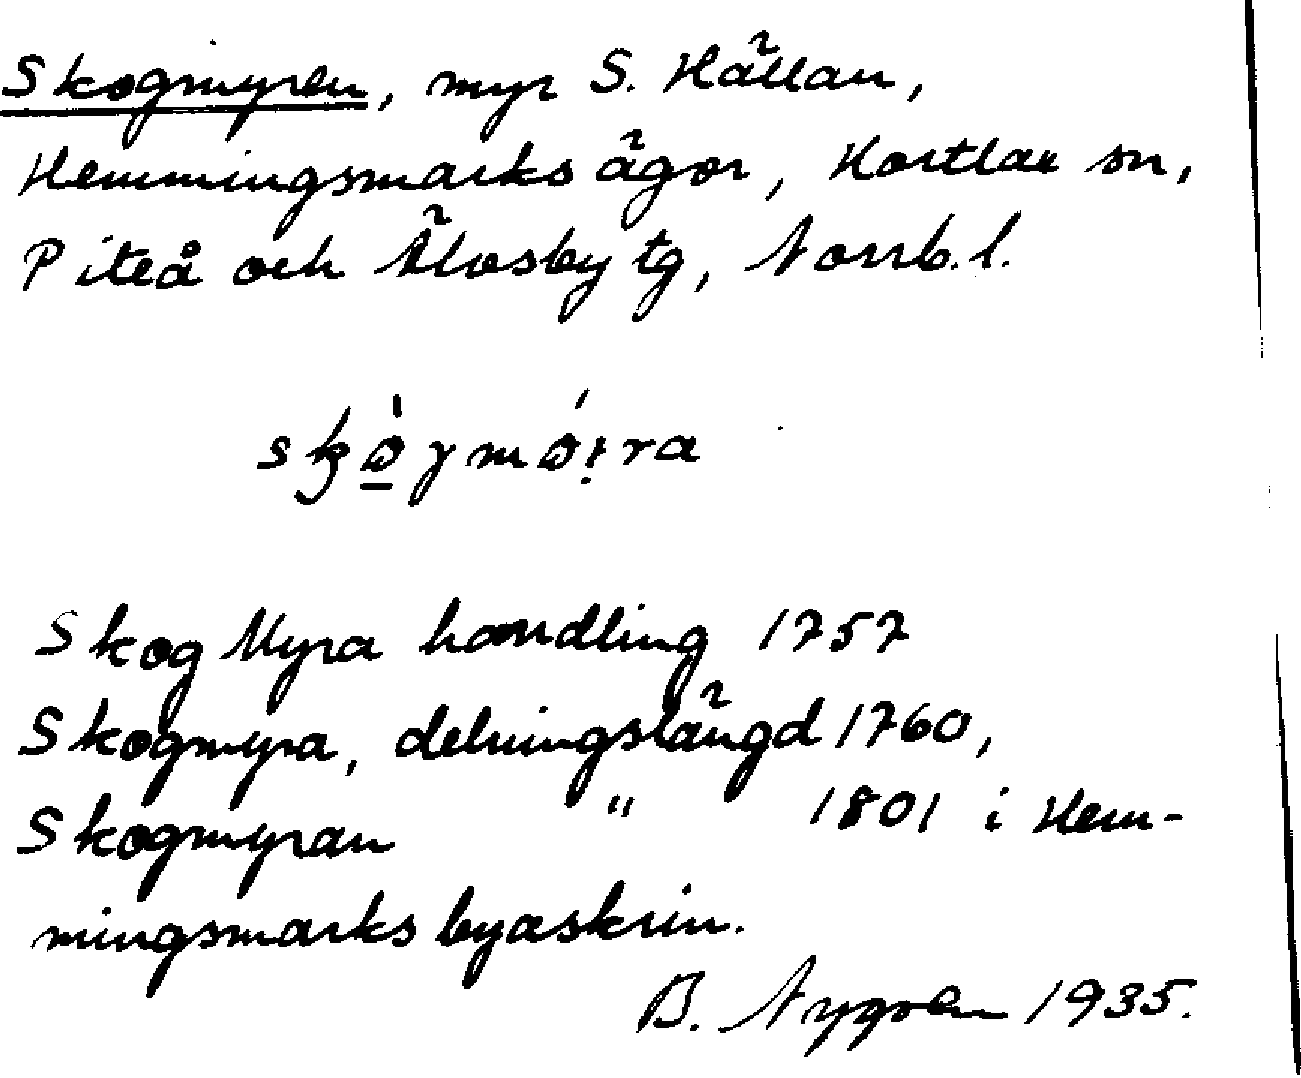 Skogmyren, myr S. Hällan,
Hemmingsmarks ägor, Hortlax sn,
Piteå och Älvsby tg, Norrb.l.
Skog Myra handling 1757
Skogmyra, delningslängd 1760,
Skogmyran " 1801 i Hem-
mingsmarks byaskrin.
B. Nygren 1935.